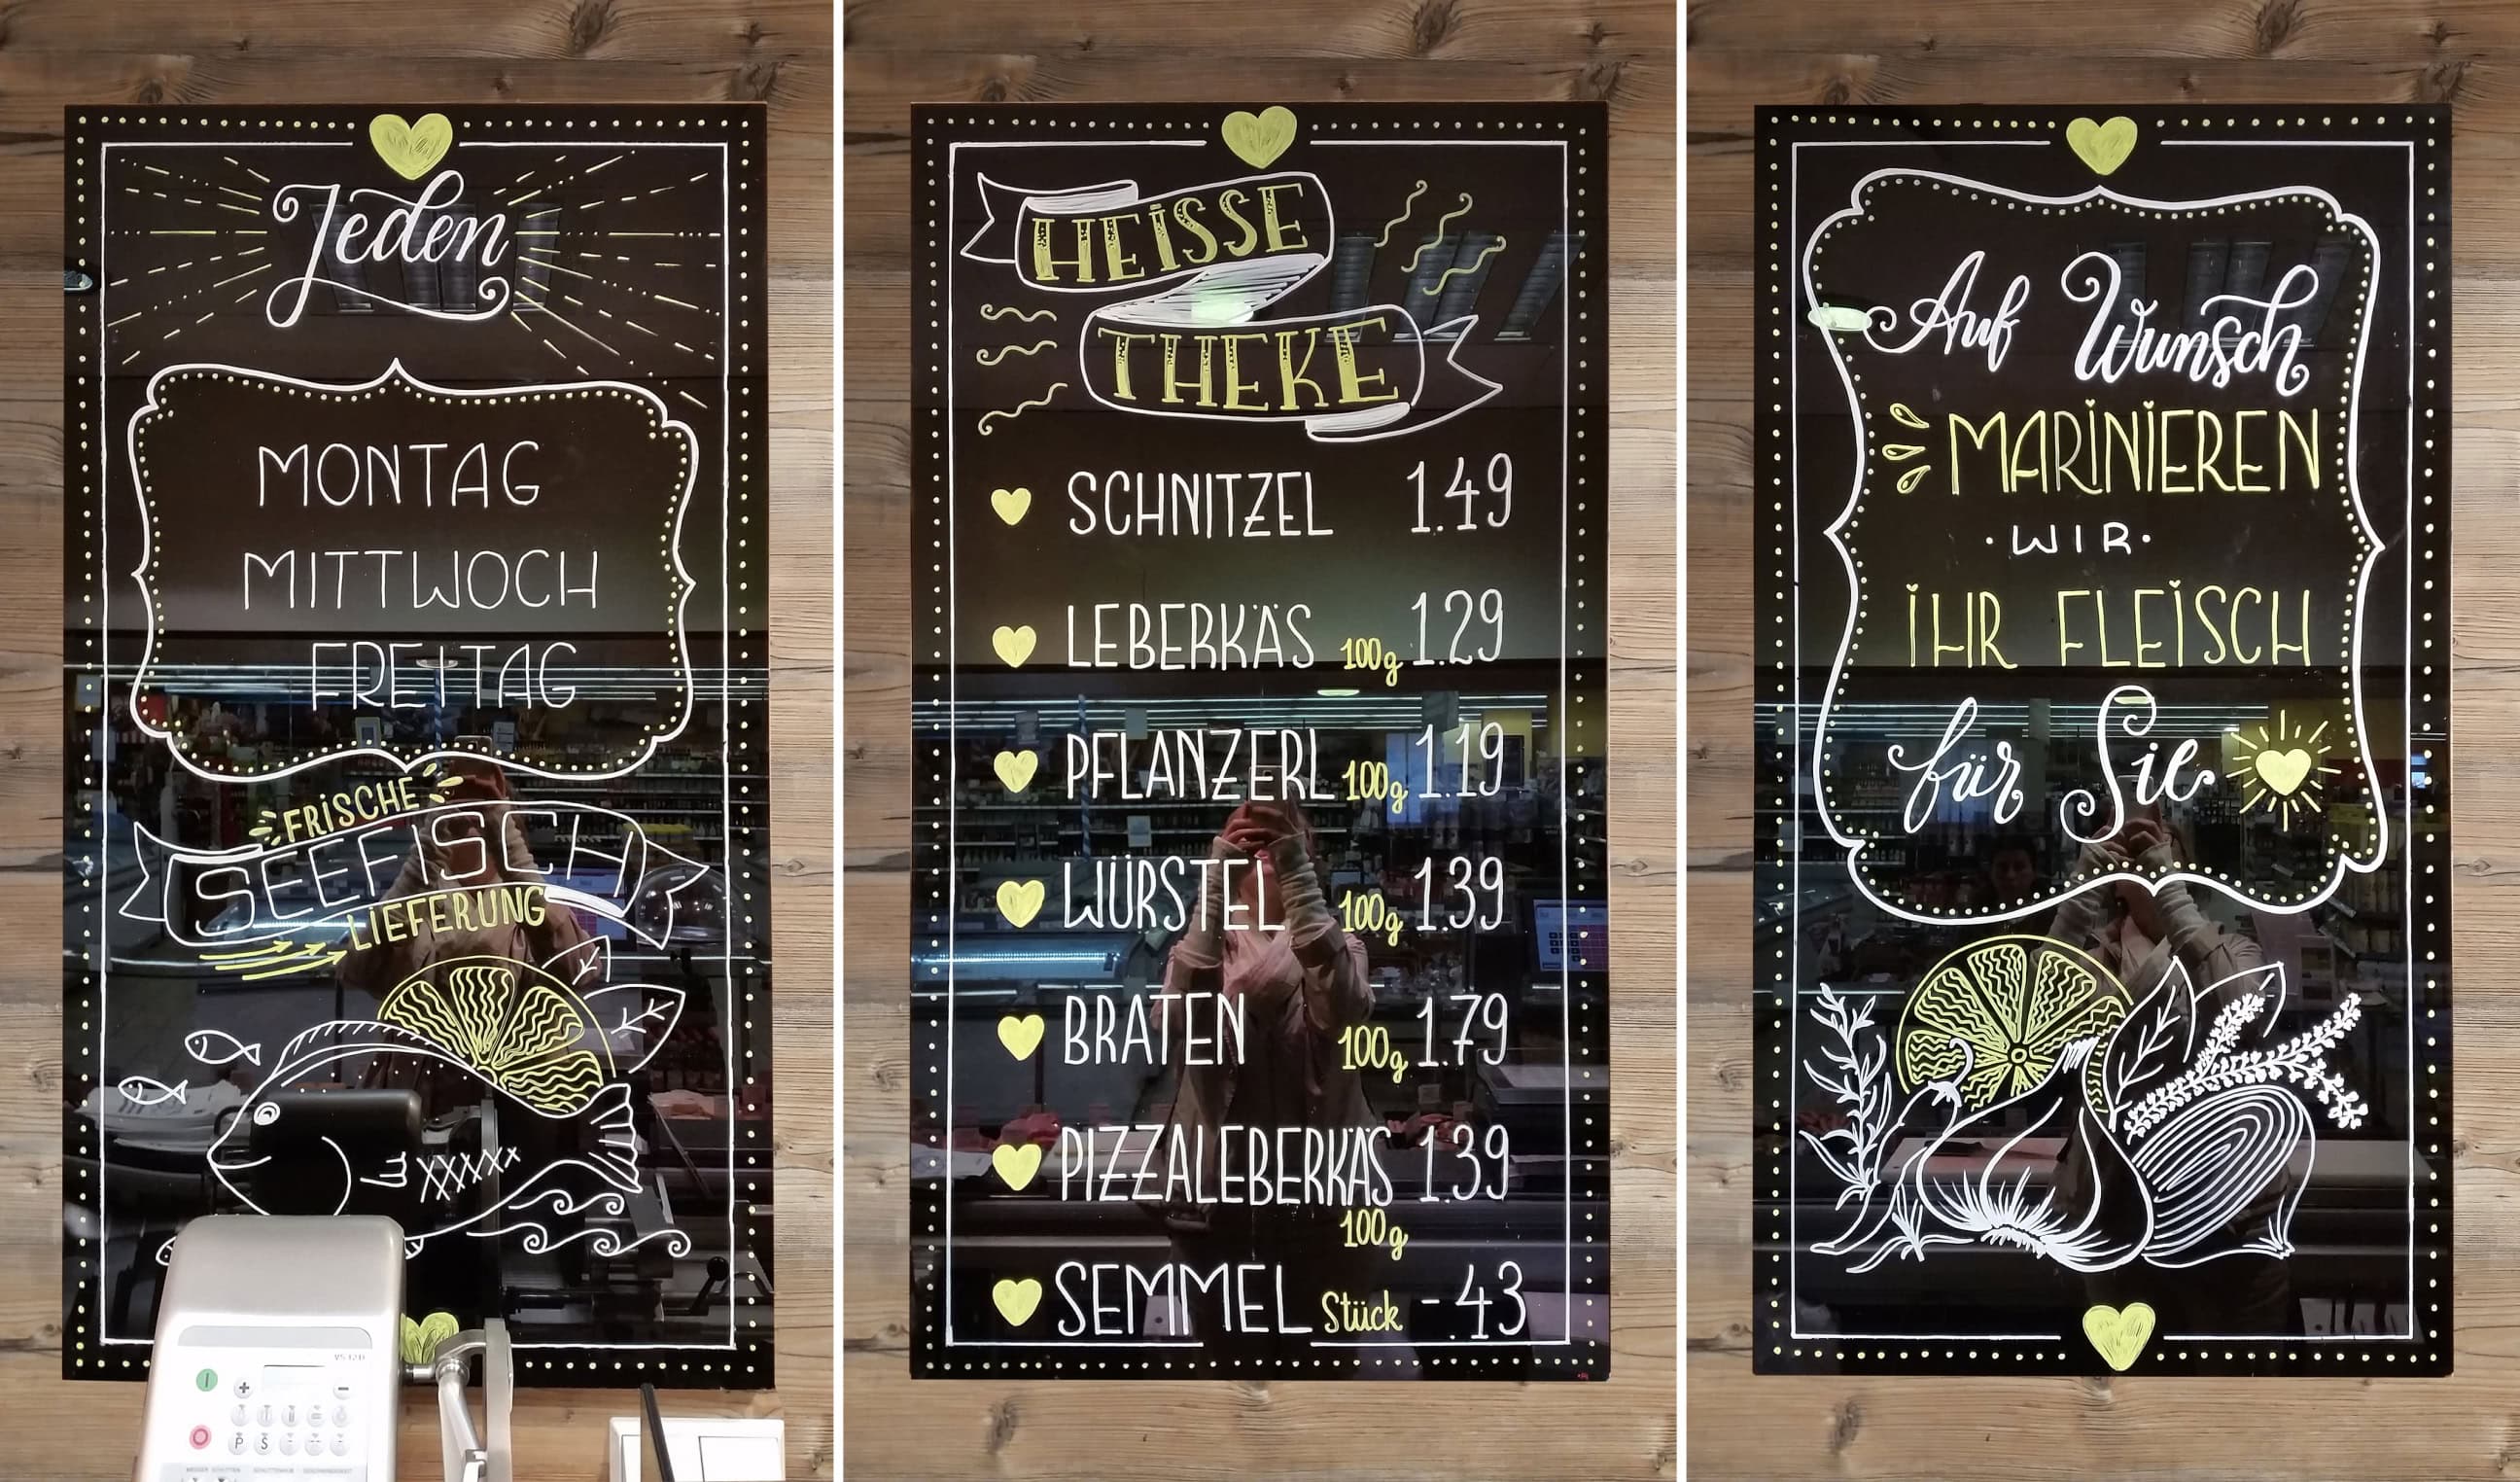 Jeden
MONTAG
MITTWOCH
FREITAG
FRISCHE
SEEFISCH
LIEFERUNG
P S
HEISSE
THEKE
SCHNITZEL 1.49
LEBERKÄS 100g 1.29
PFLANZERL 100g 1.19
WÜRSTEL 100g 1.39
BRATEN 100g 1.79
PIZZALEBERKÄS 1.39
100g
SEMMEL Stück -.43
Auf Wunsch
MARINIEREN
·WIR·
IHR FLEISCH
für Sie